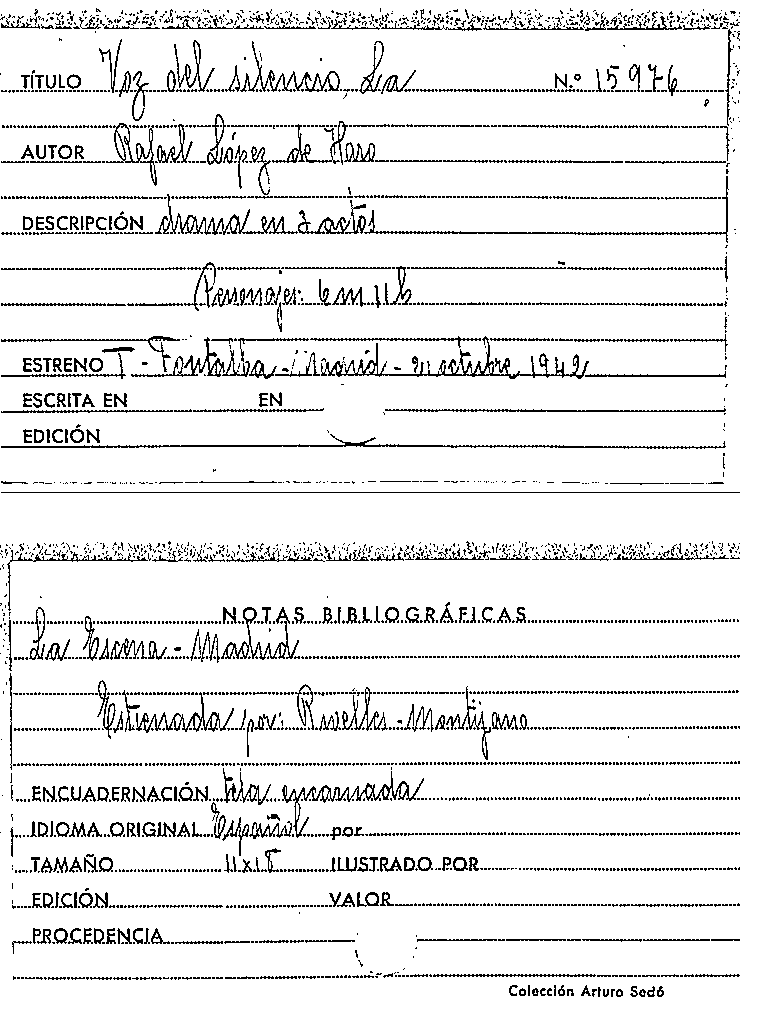 TÍTULO Voz del silencio, La N.º 15976
AUTOR Rafael López de Haro
DESCRIPCIÓN drama en 3 actos
Personajes: 6 m 11 h
ESTRENO T - Fontalba - Madrid - 21 octubre 1942
ESCRITA EN EN
EDICIÓN
NOTAS BIBLIOGRÁFICAS
La Escena - Madrid
Estrenada por: Rivelles - Montijano
ENCUADERNACIÓN tela encarnada
IDIOMA ORIGINAL Español por
TAMAÑO 11x15 ILUSTRADO POR
EDICIÓN VALOR
PROCEDENCIA
Colección Arturo Sedó